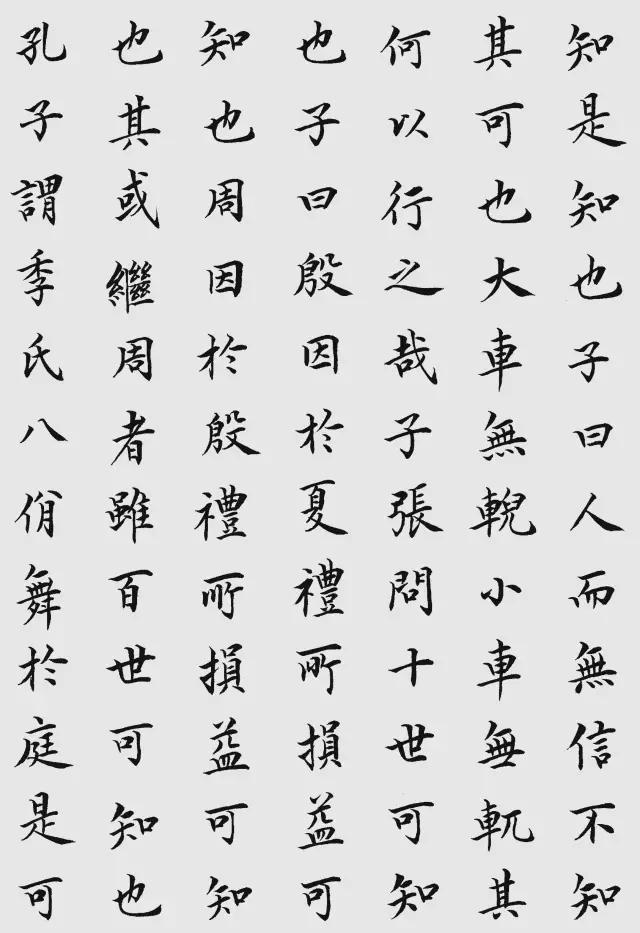 知是知也子曰人而無信不知
其可也大車無輗小車無軏其
何以行之哉子張問十世可知
也子曰殷因於夏禮所損益可
知也周因於殷禮所損益可知
也其或繼周者雖百世可知也
孔子謂季氏八佾舞於庭是可